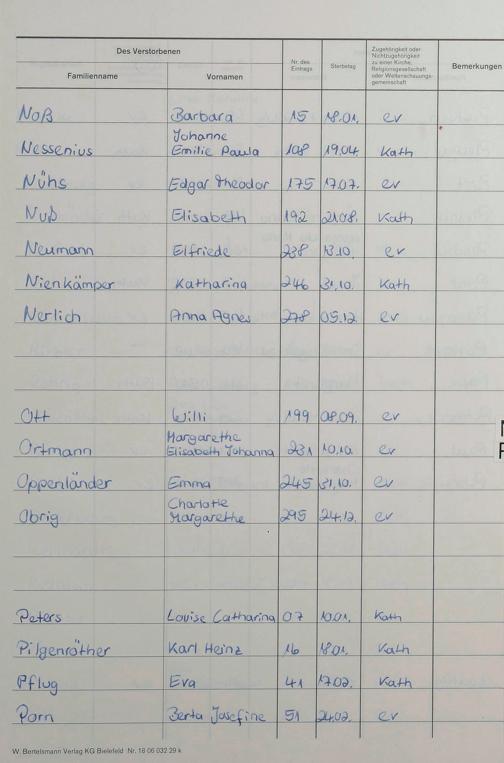 Des Verstorbenen
Nr. des Eintrags
Sterbetag
Zugehörigkeit oder Nichtzugehörigkeit zu einer Kirche, Religionsgesellschaft oder Weltanschauungsgemeinschaft
Bemerkungen
Familienname Vornamen
Noß Barbara 15 18.01. ev
Johanne
Nessenius Emilie Paula 108 19.04. Kath
Nühs Edgar Theodor 175 17.07. ev
Nuß Elisabeth 192 21.08. Kath
Neumann Elfriede 238 13.10. ev
Nienkämper Katharina 246 31.10. Kath
Nerlich Anna Agnes 278 05.12. ev
Ott Willi 199 08.09. ev
Margarethe
Ortmann Elisabeth Johanna 231 10.10. ev
Oppenländer Emma 245 31.10. ev
Charlotte
Obrig Margarethe 295 24.12. ev
Peters Louise Catharina 07 10.01. Kath
Pilgenröther Karl Heinz 16 18.01. Kath
Pflug Eva 41 17.02. Kath
Porn Berta Josefine 51 24.02. ev
W. Bertelsmann Verlag KG Bielefeld Nr. 18 06 032 29 k